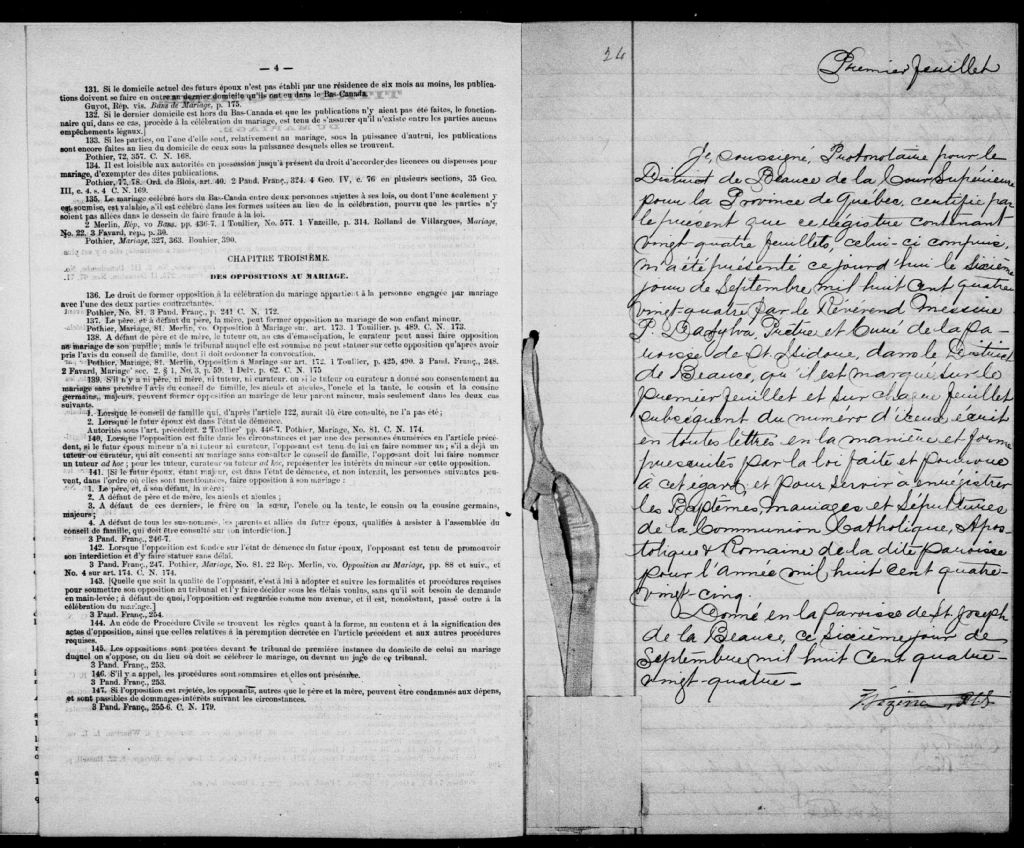 — 4 —
131. Si le domicile actuel des futurs époux n'est pas établi par une résidence de six mois au moins, les publica-
tions doivent se faire en outre au dernier domicile qu'ils ont eu dans le Bas-Canada.
Guyot, Rép. vis. Bans de Mariage, p. 175.
132. Si le dernier domicile est hors du Bas-Canada et que les publications n'y aient pas été faites, le fonction-
naire qui, dans ce cas, procède à la célébration du mariage, est tenu de s'assurer qu'il n'existe entre les parties aucuns
empêchements légaux.]
133. Si les parties, ou l'une d'elle sont, relativement au mariage, sous la puissance d'autrui, les publications
sont encore faites au lieu du domicile de ceux sous la puissance desquels elles se trouvent.
Pothier, 72, 357. C. N. 168.
134. Il est loisible aux autorités en possession jusqu'à présent du droit d'accorder des licences ou dispenses pour
mariage, d'exempter des dites publications.
Pothier, 77, 78. Ord. de Blois, art. 40. 2 Pand. Franç., 324. 4 Geo. IV, c. 76 en plusieurs sections, 35 Geo.
III, c. 4, s. 4 C. N. 169.
135. Le mariage célébré hors du Bas-Canda entre deux personnes sujettes à ses lois, ou dont l'une seulement y
est soumise, est valable, s'il est célébré dans les formes usitées au lieu de la célébration, pourvu que les parties n'y
soient pas allées dans le dessein de faire fraude à la loi.
2 Merlin, Rép, vo Bans. pp. 436-7. 1 Toullier, No. 577. 1 Vazeille, p. 314. Rolland de Villargues, Mariage,
No. 22. 3 Favard, rép., p. 30.
Pothier, Mariage, 327, 363. Bouhier, 390.
CHAPITRE TROISIÈME.
DES OPPOSITIONS AU MARIAGE.
136. Le droit de former opposition à la célébration du mariage appartient à la personne engagée par mariage
avec l'une des deux parties contractantes.
Pothier, No. 81. 3 Pand. Franç., p. 241 C. N. 172.
137. Le père, et à défaut du père, la mère, peut former opposition au mariage de son enfant mineur.
Pothier, Mariage, 81. Merlin, vo. Opposition à Mariage sur. art. 173. 1 Touillier, p. 489. C. N. 173.
138. A défaut de père et de mère, le tuteur ou, au cas d'émancipation, le curateur peut aussi faire opposition
au mariage de son pupille; mais le tribunal auquel elle est soumise ne peut statuer sur cette opposition qu'après avoir
pris l'avis du conseil de famille, dont il doit ordonner la convocation.
Pothier, Mariage, 81. Merlin, Opposition à Mariage sur art. 172. 1 Toullier, p. 425, 490. 3 Pand. Franç., 248.
2 Favard, Mariage' sec. 2. § 1, No. 3, p. 59. 1 Delv. p. 62. C. N. 175
139. S'il n'y a ni père, ni mère, ni tuteur, ni curateur, ou si le tuteur ou curateur a donné son consentement au
mariage sans prendre l'avis du conseil de famille, les aïeuls et aïeules, l'oncle et la tante, le cousin et la cousine
germains, majeurs, peuvent former opposition au mariage de leur parent mineur, mais seulement dans les deux cas
suivants.
1. Lorsque le conseil de famille qui, d'après l'article 122, aurait dû être consulté, ne l'a pas été;
2. Lorsque le futur époux est dans l'état de démence.
Autorités sous l'art. précédent. 2 Toullier' pp. 446-7. Pothier, Mariage, No. 81. C. N. 174.
140. Lorsque l'opposition est faite dans les circonstances et par une des personnes énumérées en l'article précé-
dent, si le futur époux mineur n'a ni tuteur ni curateur, l'opposant est tenu de lui en faire nommer un; s'il a déjà un
tuteur ou curateur, qui ait consenti au mariage sans consulter le conseil de famille, l'opposant doit lui faire nommer
un tuteur ad hoc; pour les tuteur, curateur ou tuteur ad hoc, représenter les intérêts du mineur sur cette opposition.
141. [Si le futur époux, étant majeur, est dans l'état de démence, et non interdit, les personnes suivantes peu-
vent, dans l'ordre où elles sont mentionnées, faire opposition à son mariage:
1. Le père, et, à son défaut, la mère;
2. A défaut de père et de mère, les aïeuls et aïeules;
3. A défaut de ces derniers, le frère ou la sœur, l'oncle ou la tante, le cousin ou la cousine germains,
majeurs;
4. A défaut de tous les sus-nommés, les parents et alliés du futur époux, qualifiés à assister à l'assemblée du
conseil de famille, qui doit être consulté sur son interdiction.]
3 Pand. Franç., 246-7.
142. Lorsque l'opposition est fondée sur l'état de démence du futur époux, l'opposant est tenu de promouvoir
son interdiction et d'y faire statuer sans délai.
3 Pand. Franç., 247. Pothier, Mariage, No. 81. 22 Rép. Merlin, vo. Opposition au Mariage, pp. 88 et suiv., et
No. 4 sur art. 174. C. N. 174.
143. [Quelle que soit la qualité de l'opposant, c'est à lui à adopter et suivre les formalités et procédures requises
pour soumettre son opposition au tribunal et l'y faire décider sous les délais voulus, sans qu'il soit besoin de demande
en main-levée; à défaut de quoi, l'opposition est regardée comme non avenue, et il est, nonobstant, passé outre à la
célébration du mariage.]
3 Pand. Franç., 254.
144. Au code de Procédure Civile se trouvent les règles quant à la forme, au contenu et à la signification des
actes d'opposition, ainsi que celles relatives à la péremption décrétée en l'article précédent et aux autres procédures
requises.
145. Les oppositions sont portées devant le tribunal de première instance du domicile de celui au mariage
duquel on s'oppose, ou du lieu où doit se célébrer le mariage, ou devant un juge de ce tribunal.
3 Pand. Franç., 253.
146. S'il y a appel, les procédures sont sommaires et elles ont préséance.
3 Pand. Franç., 253.
147. Si l'opposition est rejetée, les opposants, autres que le père et la mère, peuvent être condamnés aux dépens,
et sont passibles de dommages-intérêts suivant les circonstances.
3 Pand. Franç., 255-6. C. N. 179.
24
Premier feuillet
Je, soussigné, Protonotaire pour le
District de Beauce de la Cour Supérieure
pour la Province de Québec, certifie par
le présent que ce régistre contenant
vingt quatre feuillets, celui-ci compris,
m'a été présenté ce jourd'hui le sixième
jour de Septembre mil huit cent quatre
vingt-quatre par le Révérend Messire
Prêtre et Curé de la pa-
roisse de St. Isidore, dans le District
de Beauce, qu'il est marqué sur le
premier feuillet et sur chaque feuillet
subséquent du numéro d'iceux, écrit
en toutes lettres en la manière et forme
prescrites par la loi faite et pourvue
à cet égard, et pour servir à enregistrer
les Baptêmes, Mariages et Sépultures
de la Communion Catholique, Apos-
tolique & Romaine de la dite paroisse
pour l'Année mil huit cent quatre-
vingt-cinq.
Donné en la paroisse de St. Joseph
de la Beauce, ce Sixième jour de
Septembre mil huit cent quatre-
vingt-quatre-